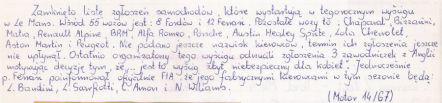 Zamknięto listę zgłoszeń samochodów, które wystartują w tegorocznym wyścigu
w Le Mans. Wśród 55 wozów jest: 8 Fordów i 12 Ferrari. Pozostałe wozy to: Chaparral, Bizzarini,
Matra, Renault Alpine BRM, Alfa Romeo, Porsche, Austin Healey Sprite, Lola Chevrolet,
Aston Martin i Peugeot. Nie podano jeszcze nazwisk kierowców, termin ich zgłoszenia jeszcze
nie upłynął. Ostatnio organizatorzy tego wyścigu odrzucili zgłoszenia 3 zawodniczek z Anglii
motywując decyzję tym, że „jest to wyścig zbyt niebezpieczny dla kobiet". Jednocześnie
p. Ferrari poinformował oficjalnie FIA że jego fabrycznymi kierowcami w tym sezonie będą:
L. Bandini, L. Scarfiotti, C. Amon i N. Williams.
(Motor 14/67)